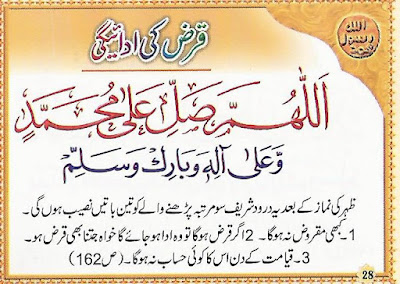 قرض کی ادائیگی
اللہ
رسول
محمد
اَللّٰهُمَّ صَلِّ عَلٰی مُحَمَّدٍ
وَّعَلٰی اٰلِهٖ وَبَارِكْ وَسَلِّمْ
ظہر کی نماز کے بعد یہ درود شریف سو مرتبہ پڑھنے والے کو تین باتیں نصیب ہوں گی۔
1-کبھی مقروض نہ ہوگا۔ 2 اگر قرض ہوگا تو وہ ادا ہو جائے گا خواہ جتنا بھی قرض ہو۔
3-قیامت کے دن اس کا کوئی حساب نہ ہوگا۔ (ص162)
28